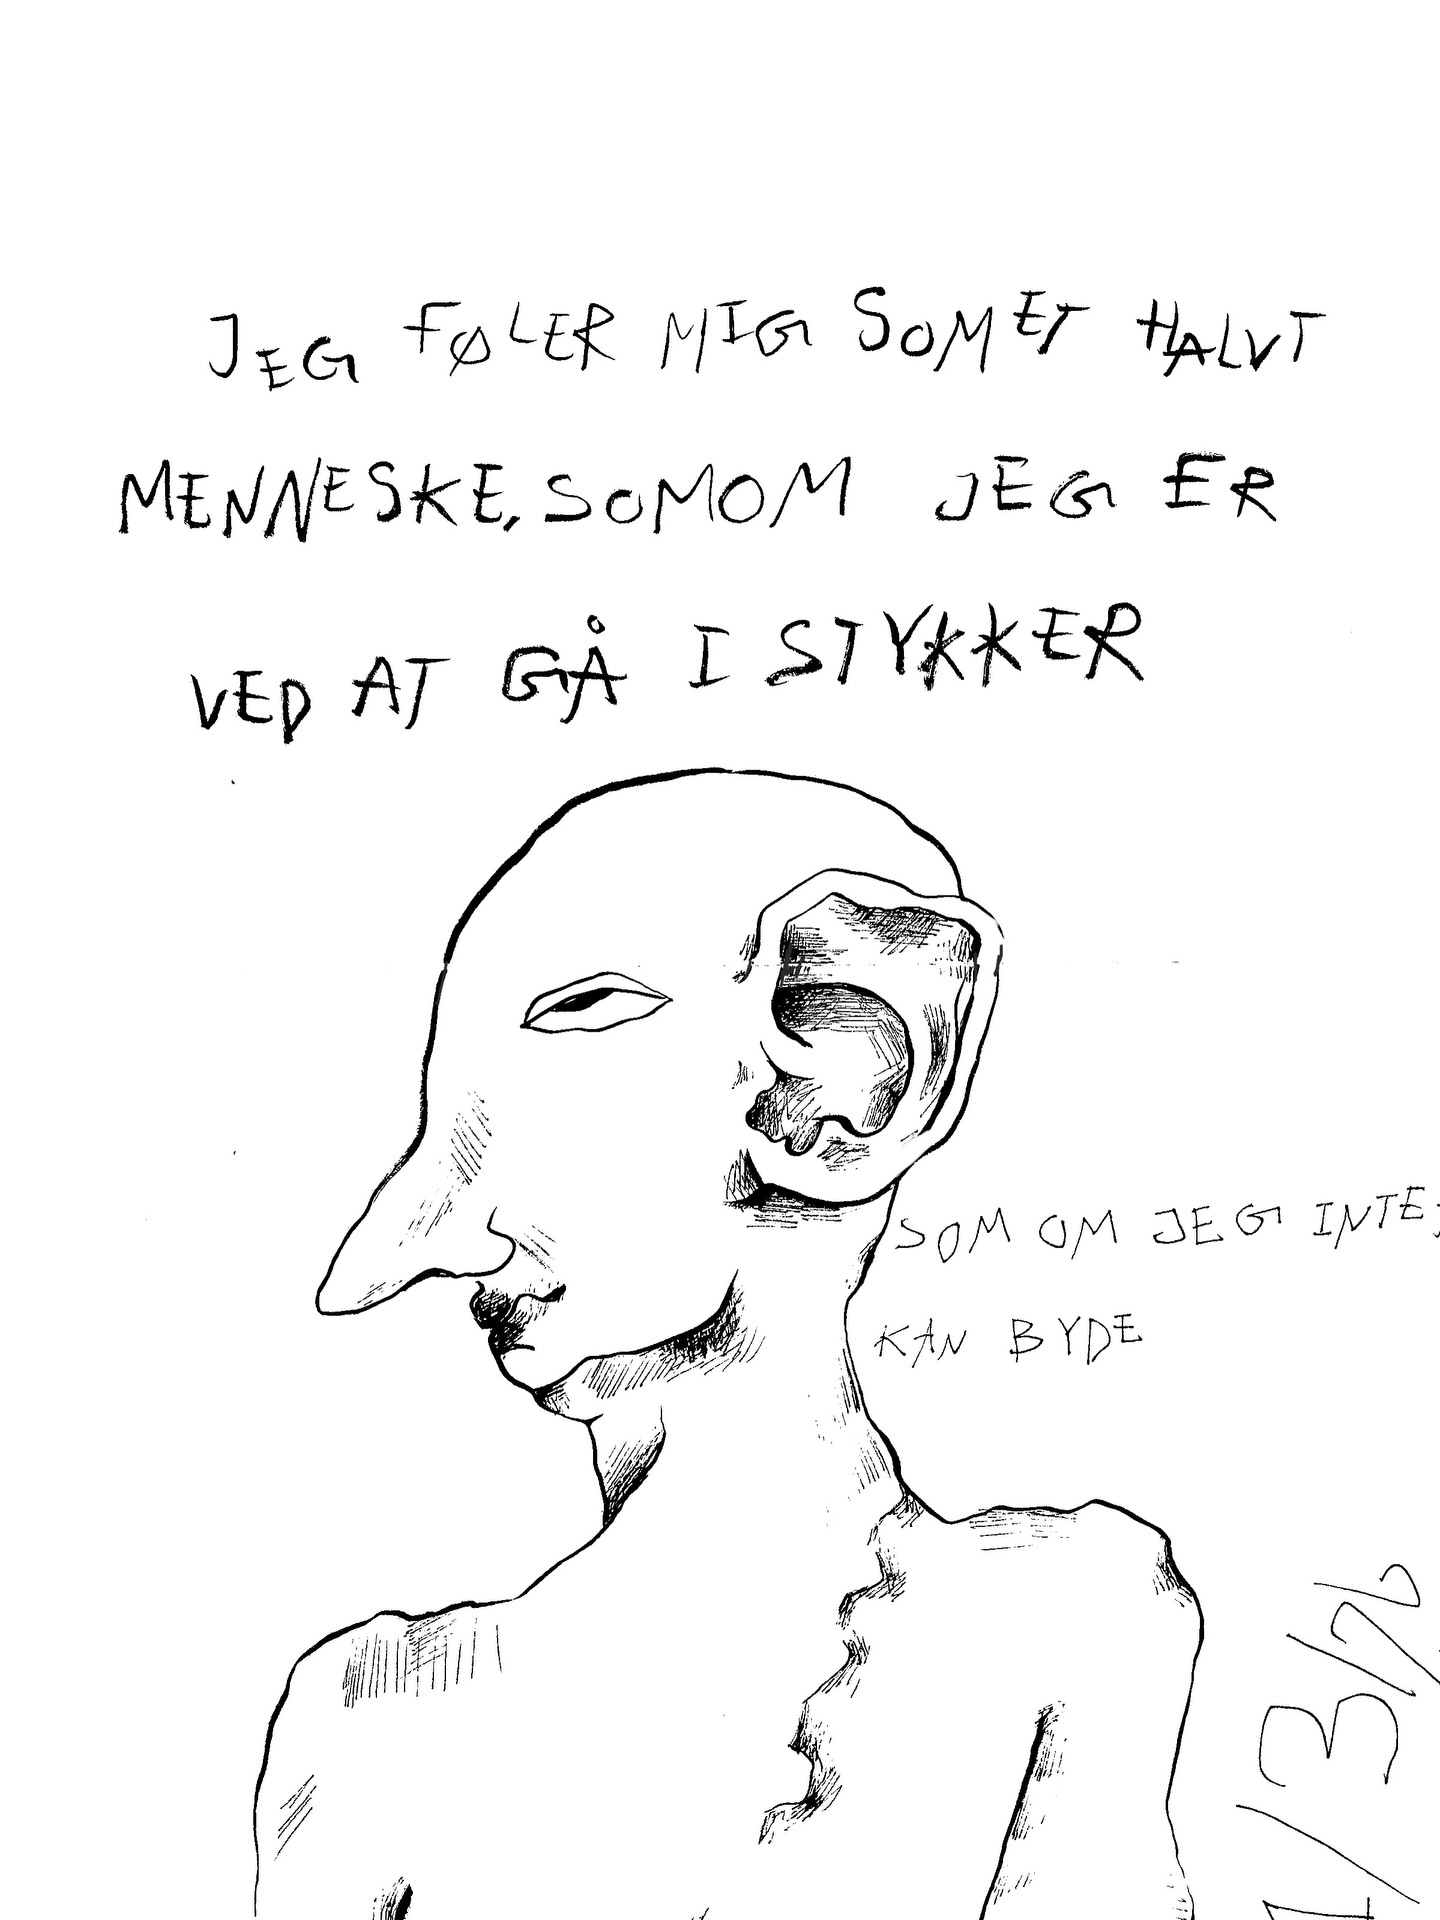 JEG FØLER MIG SOM ET HALVT
MENNESKE, SOMOM JEG ER
VED AT GÅ I STYKKER
SOM OM JEG INTE
KAN BYDE
1/3/26